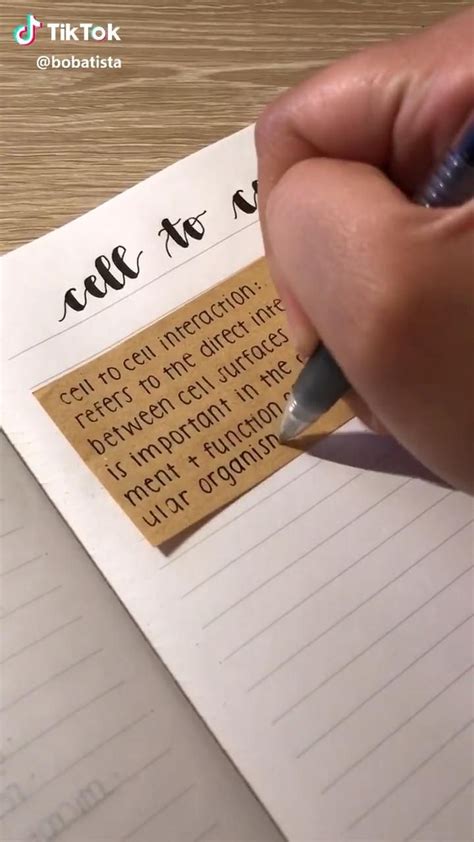 TikTok
@bobatista
cell to
cell to cell interaction:
refers to the direct
between cell surfaces
is important in the
ment + function
ular